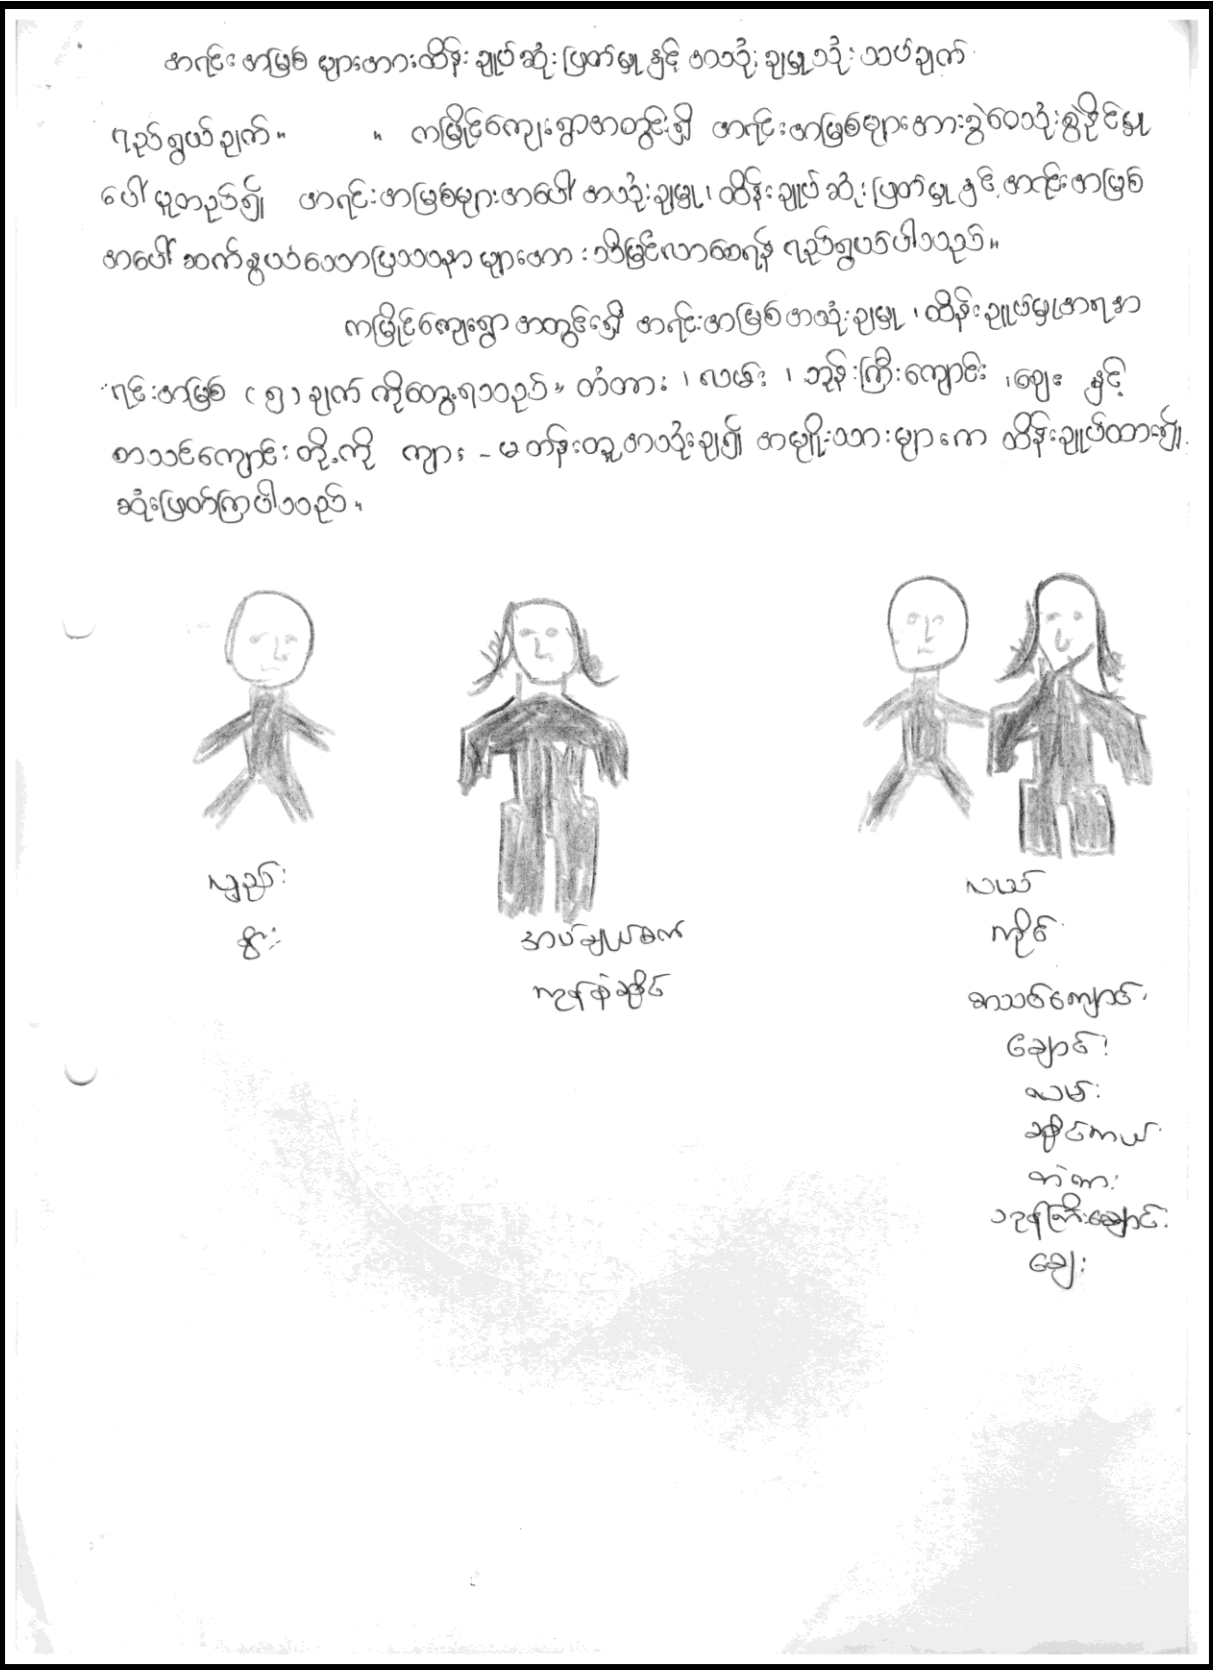 အရင်းအမြစ် များအားထိန်းချုပ်ဆုံးဖြတ်မှု နှင့် အသုံးချမှု သုံးသပ်ချက်
ရည်ရွယ်ချက်။ " ကမြိုင်ကျေးရွာအတွင်းရှိ အရင်းအမြစ်များအားခွဲဝေသုံးစွဲနိုင်မှု
ပေါ် မူတည်၍ အရင်းအမြစ်များအပေါ် အသုံးချမှု၊ ထိန်းချုပ်ဆုံးဖြတ်မှု နှင့် အရင်းအမြစ်
အပေါ် ဆက်နွယ်သောပြဿနာ များအား သိမြင်လာစေရန် ရည်ရွယ်ပါသည်။
ကမြိုင်ကျေးရွာ အတွင်းရှိ အရင်းအမြစ် အသုံးချမှု ၊ ထိန်းချုပ်မှုအရ
ရင်းအမြစ် (၅) ချက် ကိုတွေ့ရသည်။ တံတား ၊ လမ်း ၊ ဘုန်းကြီးကျောင်း ၊ဈေး နှင့်
စာသင်ကျောင်း တို့ကို ကျား - မ တန်းတူ အသုံးချ၍ အမျိုးသားများက ထိန်းချုပ်ထား၍
ဆုံးဖြတ်ကြပါသည်။
လှည်း
နွား
အပ်ချုပ်စက်
ကုန်စုံဆိုင်
လယ်
ကိုင်း
စာသင်ကျောင်း
ချောင်း
လမ်း
ဆိုင်ကယ်
တံတား
ဘုန်းကြီးကျောင်း
ဈေး